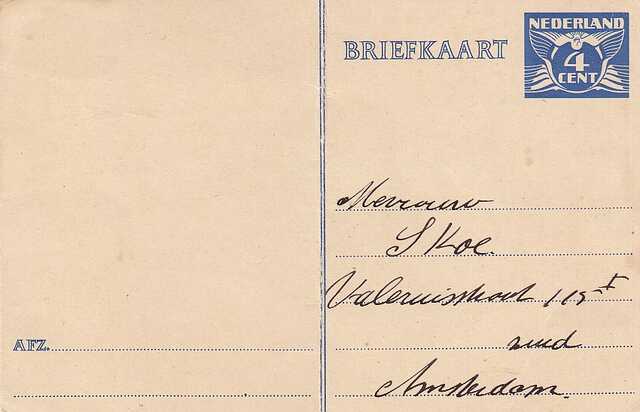 NEDERLAND
4
CENT
BRIEFKAART
Mevrouw
S Koe.
115 I
zuid
Amsterdam.
AFZ.